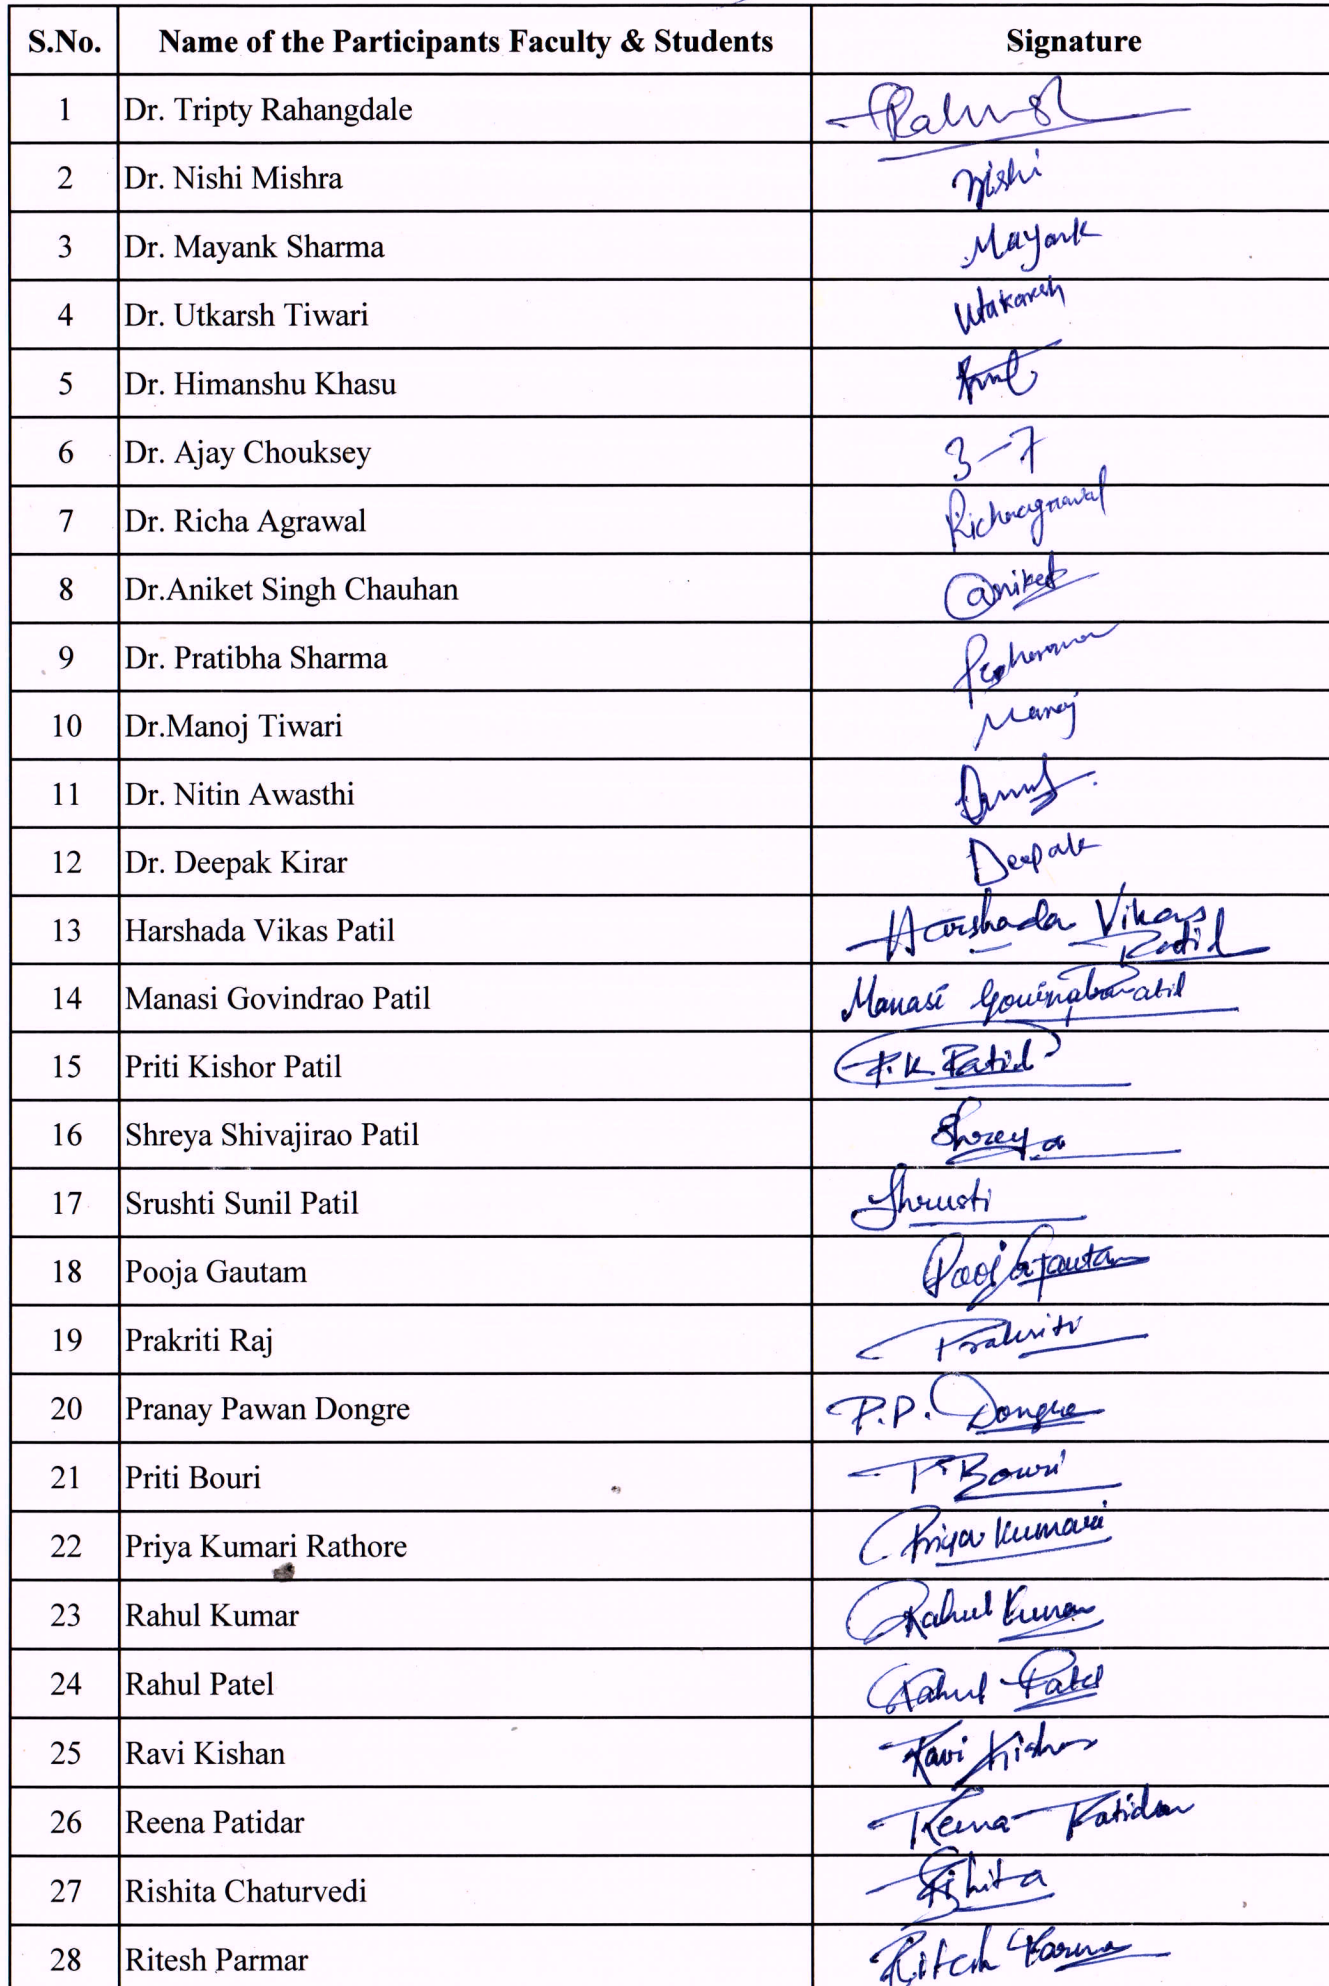 S.No. Name of the Participants Faculty & Students Signature
1 Dr. Tripty Rahangdale
2 Dr. Nishi Mishra Nishi
3 Dr. Mayank Sharma Mayank
4 Dr. Utkarsh Tiwari Utakarsh
5 Dr. Himanshu Khasu
6 Dr. Ajay Chouksey
7 Dr. Richa Agrawal Richaagrawal
8 Dr.Aniket Singh Chauhan aniket
9 Dr. Pratibha Sharma
10 Dr.Manoj Tiwari Manoj
11 Dr. Nitin Awasthi
12 Dr. Deepak Kirar Deepak
13 Harshada Vikas Patil Harshada Vikas Patil
14 Manasi Govindrao Patil Manasi Govindrao Patil
15 Priti Kishor Patil P.K. Patil
16 Shreya Shivajirao Patil Shreya
17 Srushti Sunil Patil Shrusti
18 Pooja Gautam Pooja Gautam
19 Prakriti Raj Prakriti
20 Pranay Pawan Dongre P.P. Dongre
21 Priti Bouri P. Bouri
22 Priya Kumari Rathore Priya Kumari
23 Rahul Kumar Rahul Kumar
24 Rahul Patel Rahul Patel
25 Ravi Kishan Ravi Kishan
26 Reena Patidar Reena Patidar
27 Rishita Chaturvedi Rishita
28 Ritesh Parmar Ritesh Parmar